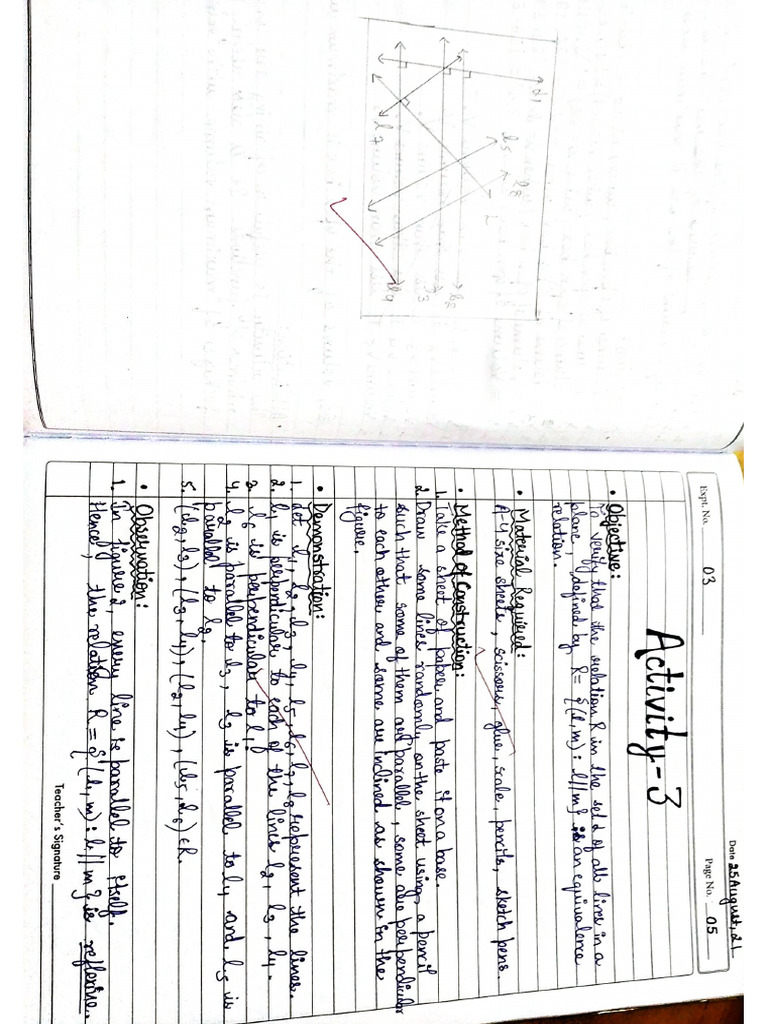 Date 25 August, 21
Expt. No. 03
Page No. 05
Activity-3
• Objective:
To verify that the relation R in the set L of all lines in a
plane, defined by R = {(l,m) : l||m} is an equivalence
relation.
• Material Required:
A-4 size sheets, scissors, glue, scale, pencils, sketch pens.
• Method of Construction:
1. Take a sheet of paper and paste it on a base.
2. Draw some lines randomly on the sheet using a pencil
such that some of them are parallel, some are perpendicular
to each other and some are inclined as shown in the
figure.
• Demonstration:
1. Let l1, l2, l3, l4, l5, l6, l7, l8 represent the lines.
2. l1 is perpendicular to each of the lines l2, l3, l4.
3. l6 is perpendicular to l7.
4. l2 is parallel to l3, l3 is parallel to l4 and l5 is
parallel to l8.
5. (l2, l3), (l3, l4), (l2, l4), (l5, l8) ∈ R.
• Observation:
1. In figure 2, every line is parallel to itself.
Hence, the relation R = {(l,m) : l||m} is reflexive.
Teacher's Signature
l1
l5
l8
l7
l2
l3
l4